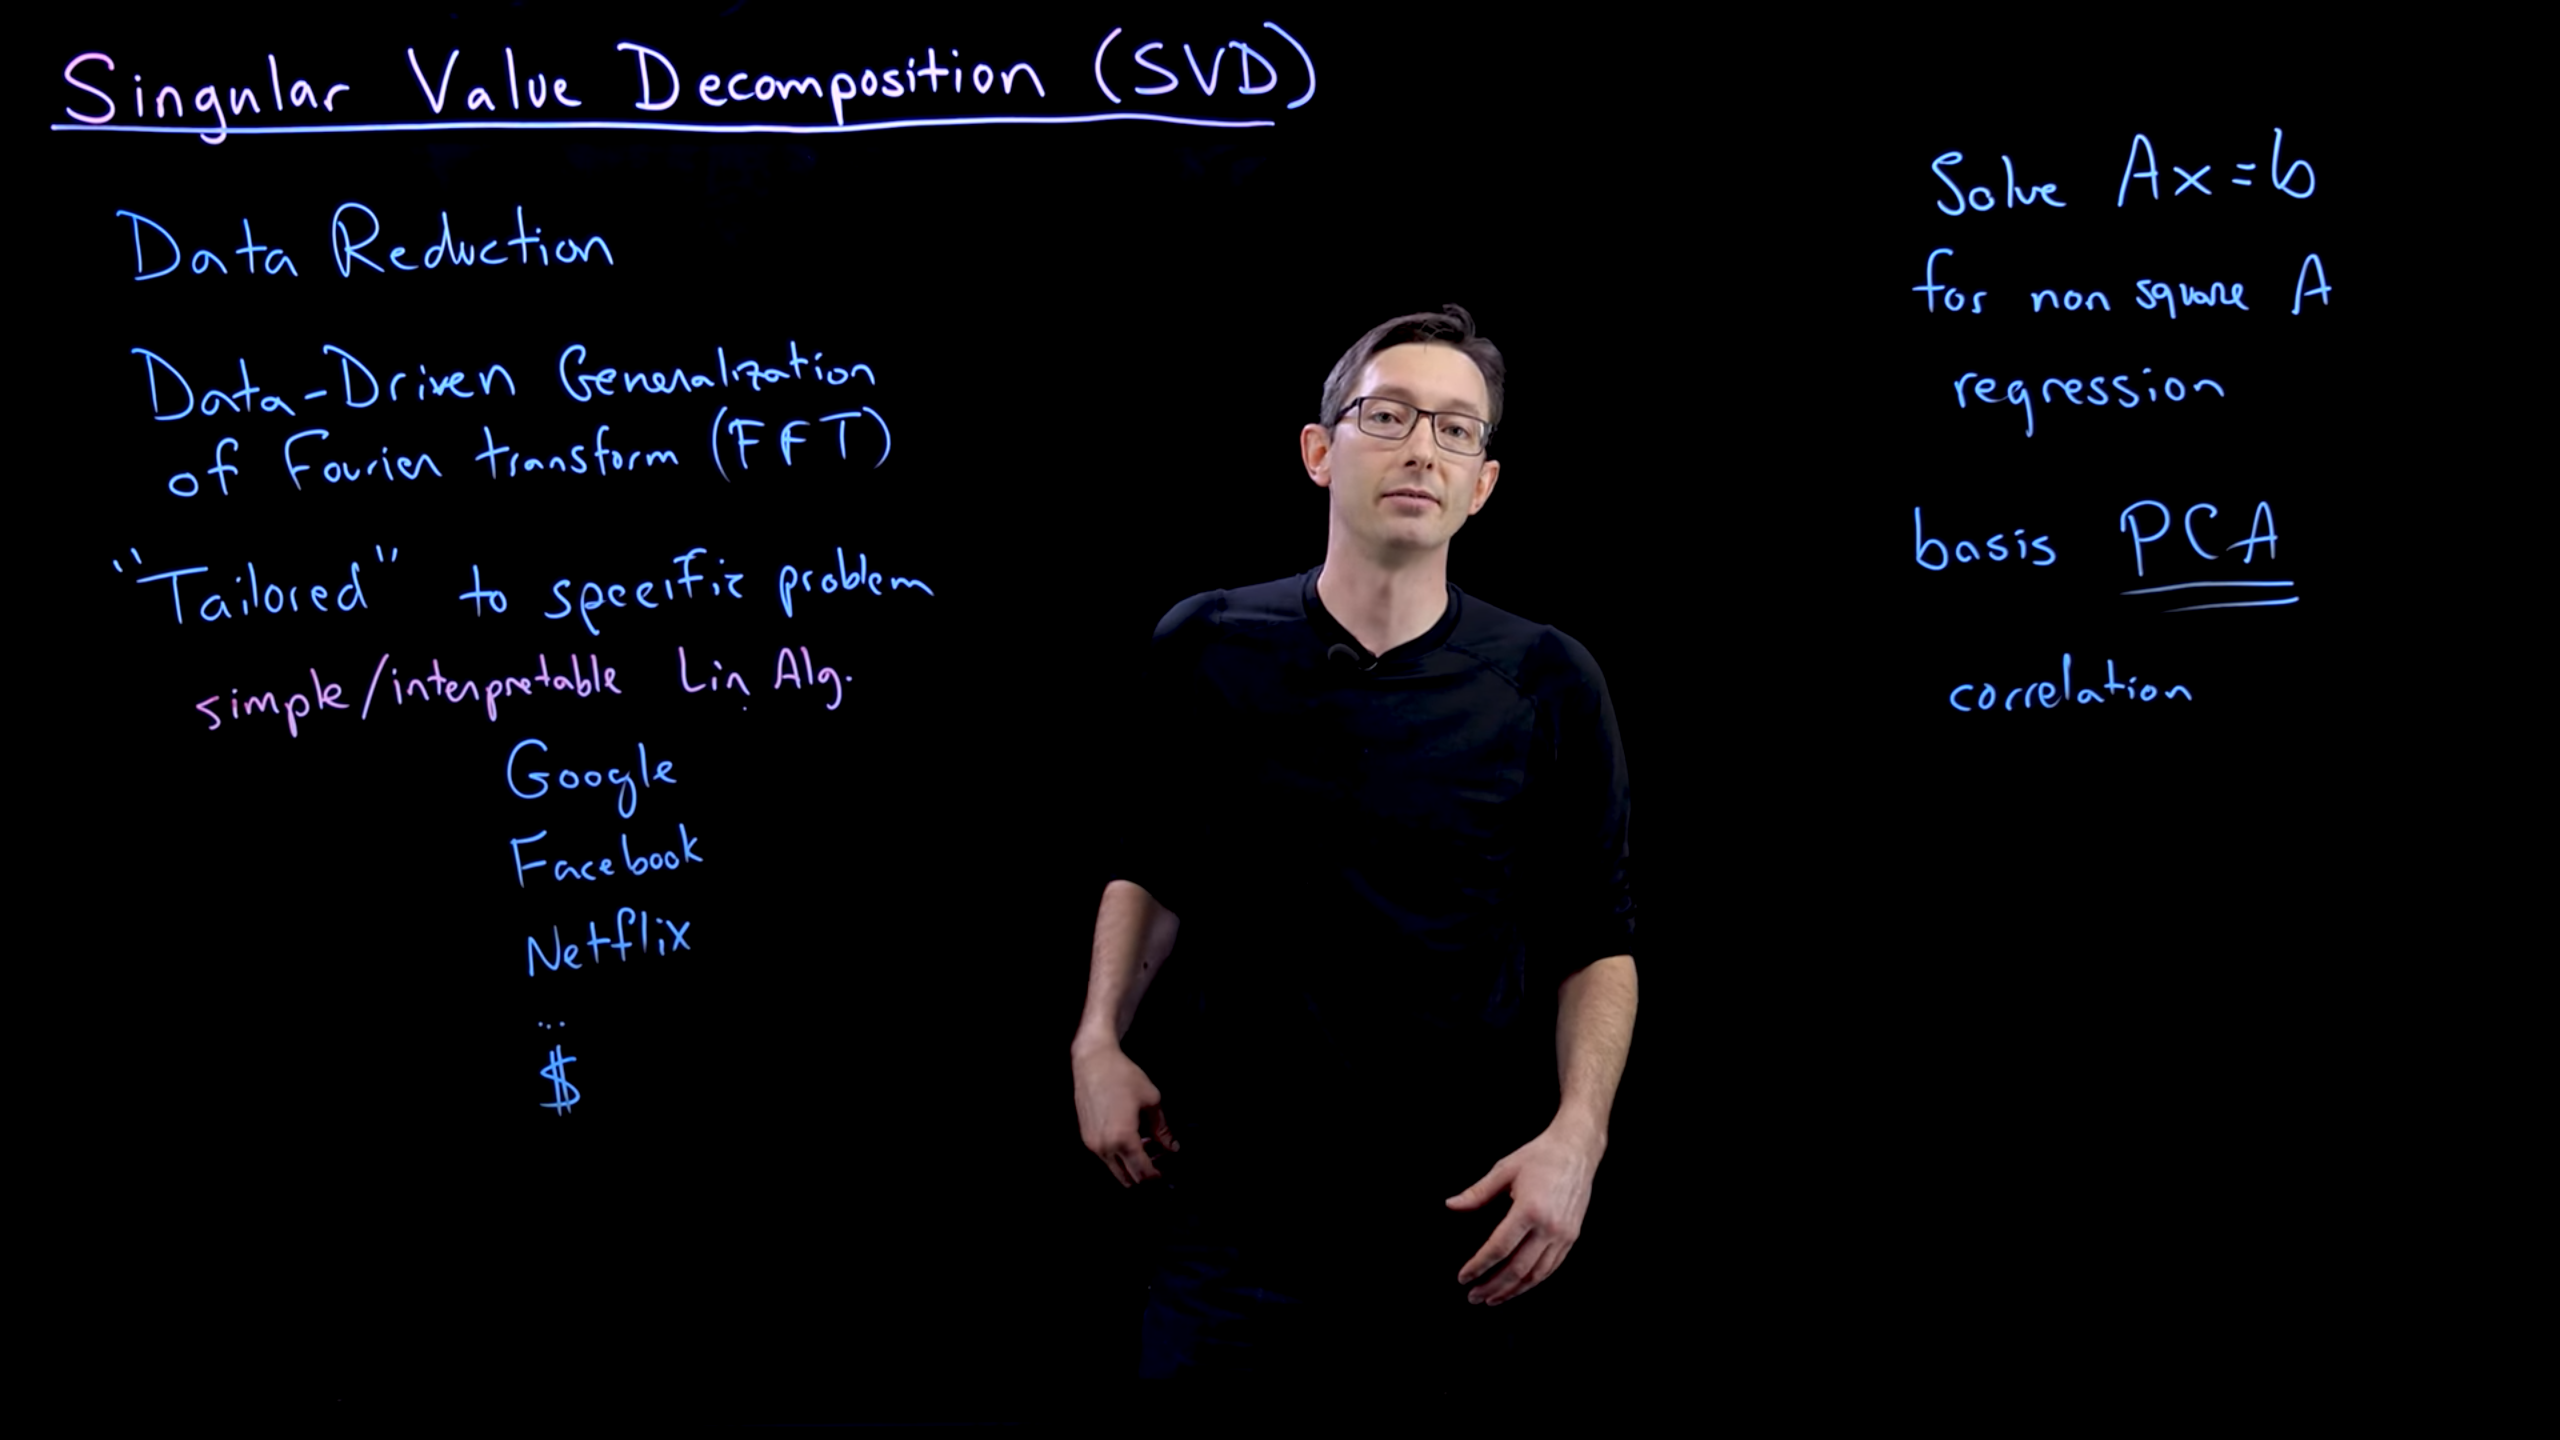 Singular Value Decomposition (SVD)
Data Reduction
Data-Driven Generalization
of Fourier transform (FFT)
"Tailored" to specific problem
simple/interpretable Lin Alg.
Google
Facebook
Netflix
...
$
Solve Ax=b
for non square A
regression
basis PCA
correlation